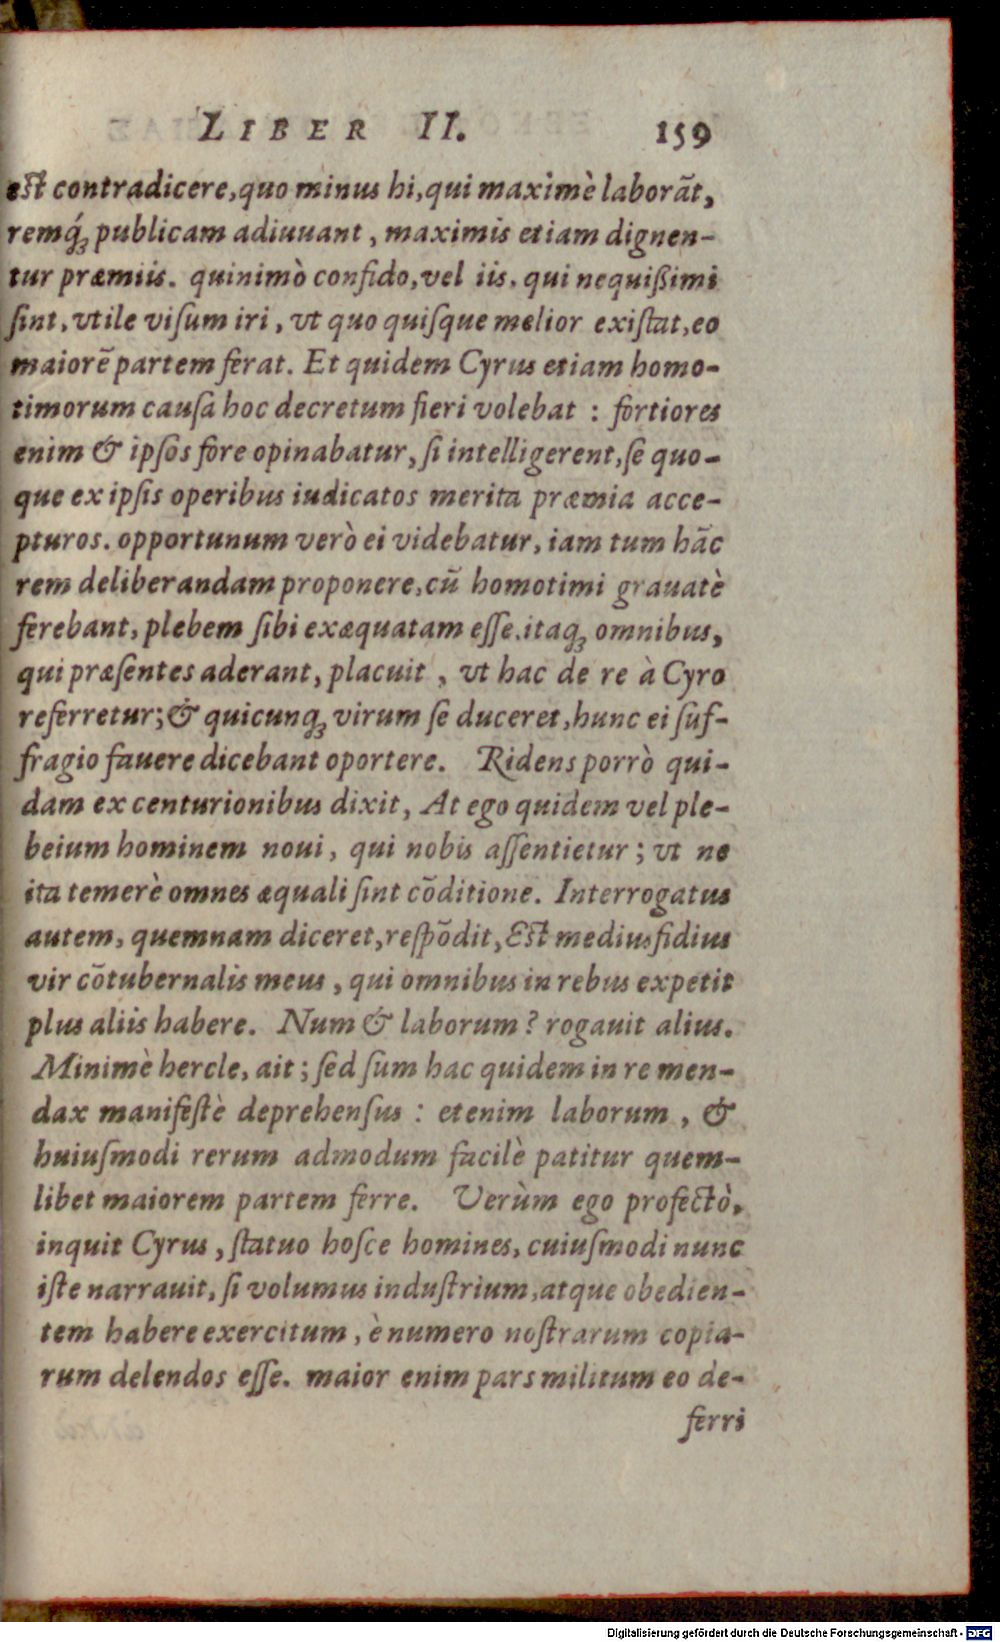 LIBER II. 159
est contradicere, quo minus hi, qui maximè laborãt,
remq́ꝫ publicam adiuuant, maximis etiam dignen-
tur præmiis. quinimò confido, vel iis, qui nequißimi
ſint, vtile viſum iri, vt quo quiſque melior exiſtat, eo
maiorẽ partem ferat. Et quidem Cyrus etiam homo-
timorum cauſa hoc decretum fieri volebat : fortiores
enim & ipſos fore opinabatur, ſi intelligerent, ſe quo-
que ex ipſis operibus iudicatos merita præmia acce-
pturos. opportunum verò ei videbatur, iam tum hãc
rem deliberandam proponere, cũ homotimi grauatè
ferebant, plebem ſibi exæquatam eſſe. itaqꝫ omnibus,
qui præſentes aderant, placuit, vt hac de re à Cyro
referretur; & quicunqꝫ virum ſe duceret, hunc ei ſuf-
fragio fauere dicebant oportere. Ridens porrò qui-
dam ex centurionibus dixit, At ego quidem vel ple-
beium hominem noui, qui nobis aſſentietur; vt ne
ita temerè omnes æquali ſint cõditione. Interrogatus
autem, quemnam diceret, reſpõdit, Est medius fidius
vir cõtubernalis meus, qui omnibus in rebus expetit
plus aliis habere. Num & laborum? rogauit alius.
Minimè hercle, ait; ſed ſum hac quidem in re men-
dax manifeſtè deprehenſus : etenim laborum, &
huiuſmodi rerum admodum facilè patitur quem-
libet maiorem partem ferre. Verùm ego profectò,
inquit Cyrus, ſtatuo hoſce homines, cuiuſmodi nunc
iſte narrauit, ſi volumus induſtrium, atque obedien-
tem habere exercitum, è numero noſtrarum copia-
rum delendos eſſe. maior enim pars militum eo de-
ferri
Digitalisierung gefördert durch die Deutsche Forschungsgemeinschaft - DFG